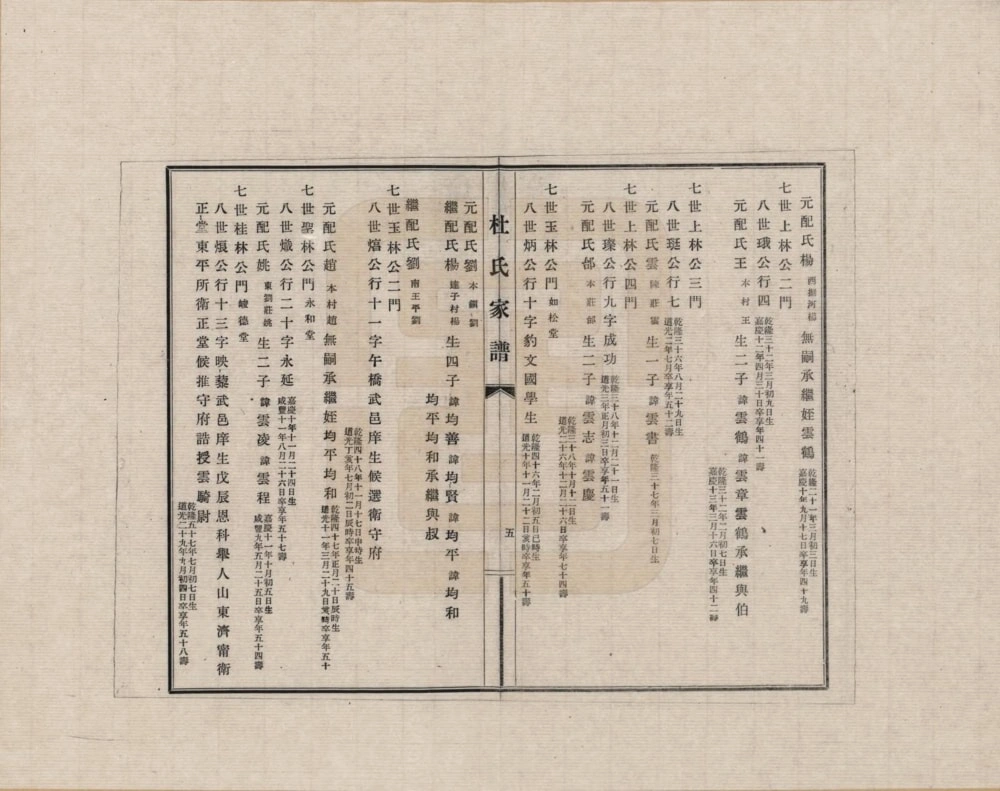 元配氏楊 西擺河楊 無嗣承繼姪雲鶴 乾隆二十一年三月初三日生 嘉慶十年九月十七日卒享年四十九壽
七世上林公二門
八世珴公行四 乾隆三十二年三月初九日生 嘉慶十二年四月三十日卒享年四十一壽
元配氏王 本村王 生二子 諱雲鶴 諱雲章雲鶴承繼與伯 乾隆三十二年二月初七日生 嘉慶十三年三月十六日卒享年四十二壽
七世上林公三門
八世珽公行七 乾隆三十六年八月二十九日生 道光二年七月卒享年五十二壽
元配氏雲 陳莊雲 生一子 諱雲書 乾隆三十七年三月初七日生
七世上林公四門
八世瑧公行九字成功 乾隆三十八年十二月二十一日生 道光三年正月初三日卒享年五十一壽
元配氏邰 本莊邰 生二子 諱雲志 諱雲慶 乾隆三十八年十月十二日生 道光二十六年十二月二十六日卒享年七十四壽
七世玉林公門 如松堂
八世炳公行十字豹文國學生 乾隆四十六年二月初五日巳時生 道光十年十一月二十二日亥時卒享年五十壽
杜氏家譜
五
元配氏劉 本鎮劉
繼配氏楊 達子村楊 生四子 諱均善 諱均賢 諱均平 諱均和
均平均和承繼與叔
繼配氏劉 南王平劉
七世玉林公二門
八世熺公行十一字午橋武邑庠生候選衛守府 乾隆四十八年十一月十七日申時生 道光丁亥年七月初二日辰時卒享年四十五壽
元配氏趙 本村趙 無嗣承繼姪均平均和 乾隆四十七年正月二十日辰時生 道光十一年三月二十九日亥時卒享年五十
七世聖林公門 永和堂
八世熾公行二十字永延 嘉慶十年十一月二十四日生 咸豐十一年八月二十六日卒享年五十七壽
元配氏姚 東劉莊姚 生二子 諱雲凌 諱雲程 嘉慶十一年十月初五日生 咸豐九年五月二十五日卒享年五十四壽
七世桂林公門 峻德堂
八世熉公行十三字映藜武邑庠生戊辰恩科舉人山東濟甯衛
正堂東平所衛正堂候推守府誥授雲騎尉 乾隆五十七年七月初七日生 道光二十九年九月初四日卒享年五十八壽